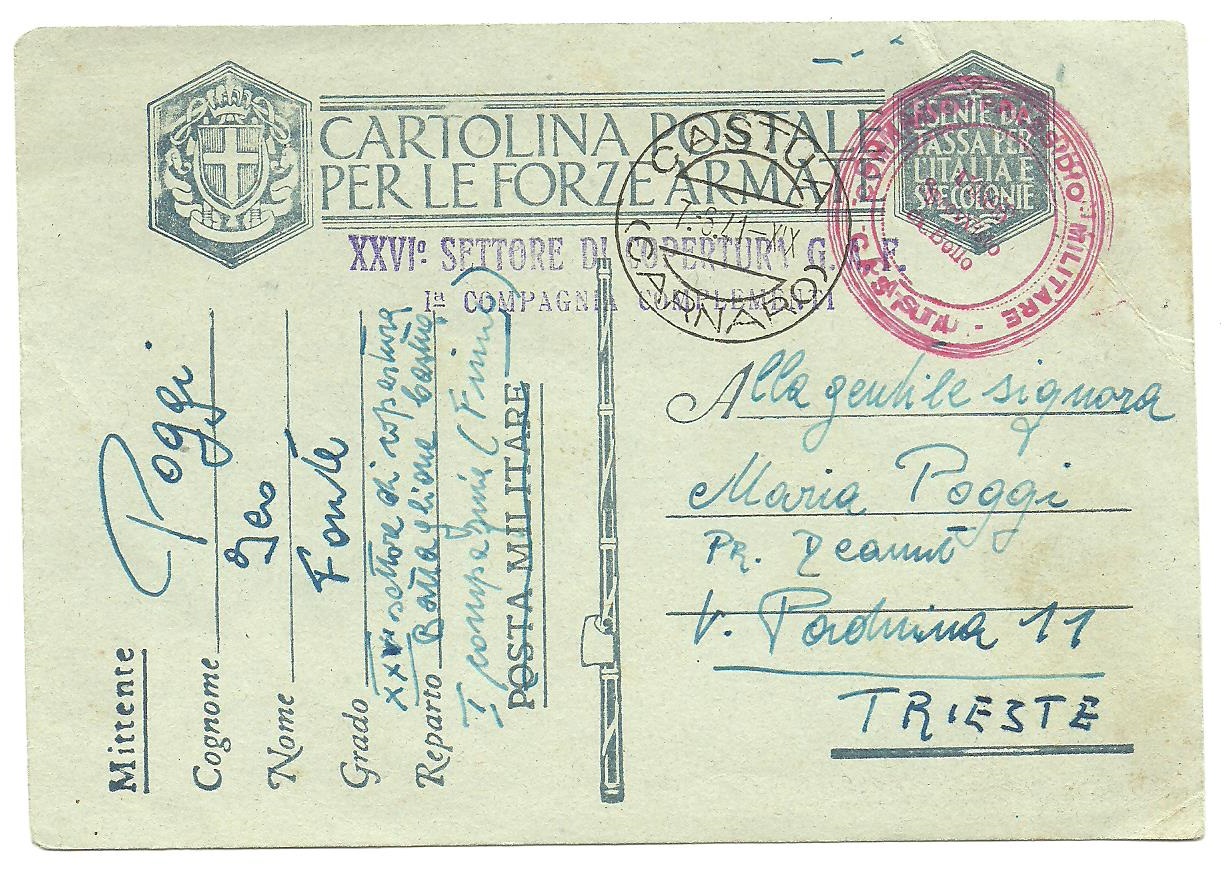 CARTOLINA POSTALE
PER LE FORZE ARMATE
ESENTE DA
TASSA PER
L'ITALIA E
SUE COLONIE
CASTUA
(CARNARO)
XXVIº SETTORE DI COPERTURA G. A. F.
Iª COMPAGNIA COMPLEMENTI
MILITARE
Mittente
Cognome Poggi
Nome
Grado Fante
Reparto XXVI settore di copertura
Battaglione Castua
I compagnia (Fiume)
POSTA MILITARE
Alla gentile signora
Maria Poggi
Pr.
V. Paduina 11
TRIESTE